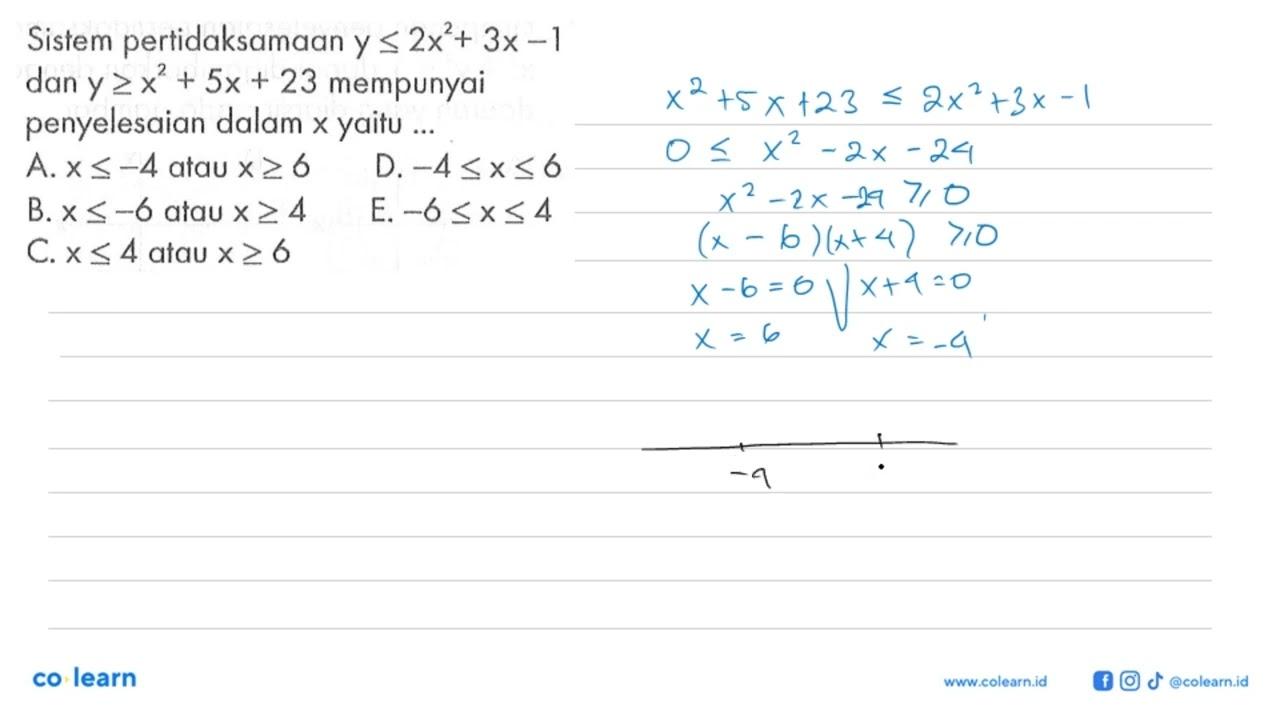 Sistem pertidaksamaan y ≤ 2x²+ 3x – 1
dan y ≥ x² + 5x + 23 mempunyai
penyelesaian dalam x yaitu ...
A. x ≤ –4 atau x ≥ 6 D. –4 ≤ x ≤ 6
B. x ≤ –6 atau x ≥ 4 E. –6 ≤ x ≤ 4
C. x ≤ 4 atau x ≥ 6
x² + 5x + 23 ≤ 2x² + 3x - 1
0 ≤ x² - 2x - 24
x² - 2x - 24 ≥ 0
(x - 6)(x + 4) ≥ 0
x - 6 = 0 V x + 4 = 0
x = 6 x = -4
-4
co learn
www.colearn.id @colearn.id